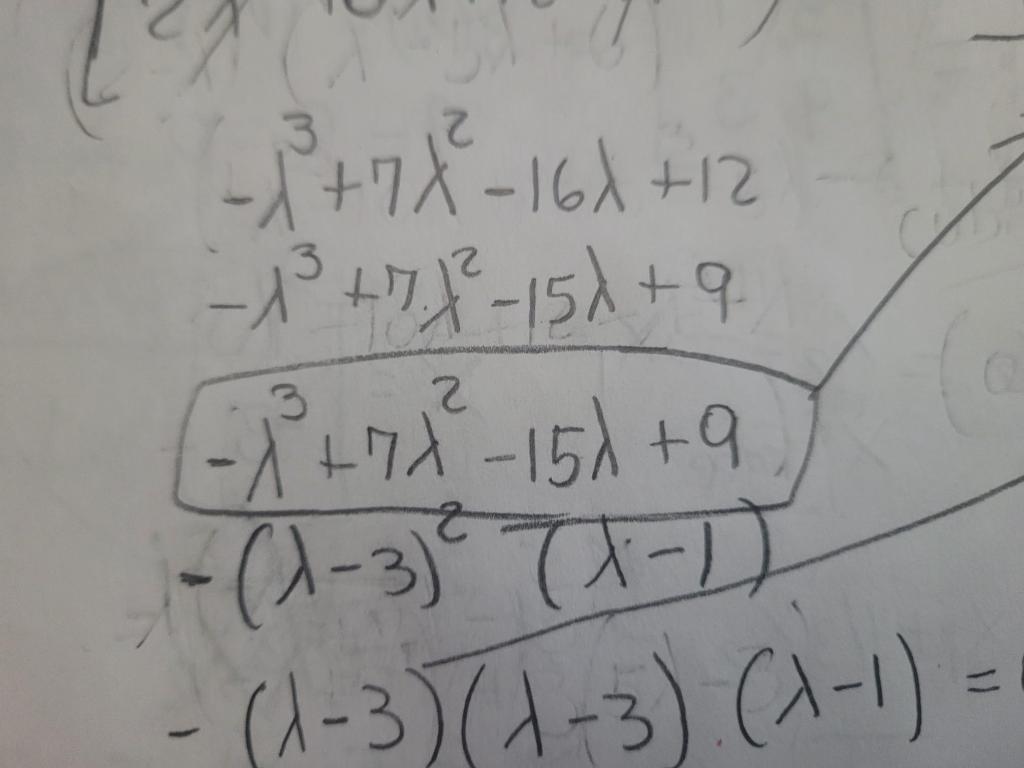 -λ³+7λ²-16λ+12
-λ³+7λ²-15λ+9
-λ³+7λ²-15λ+9
-(λ-3)²(λ-1)
-(λ-3)(λ-3)(λ-1)=